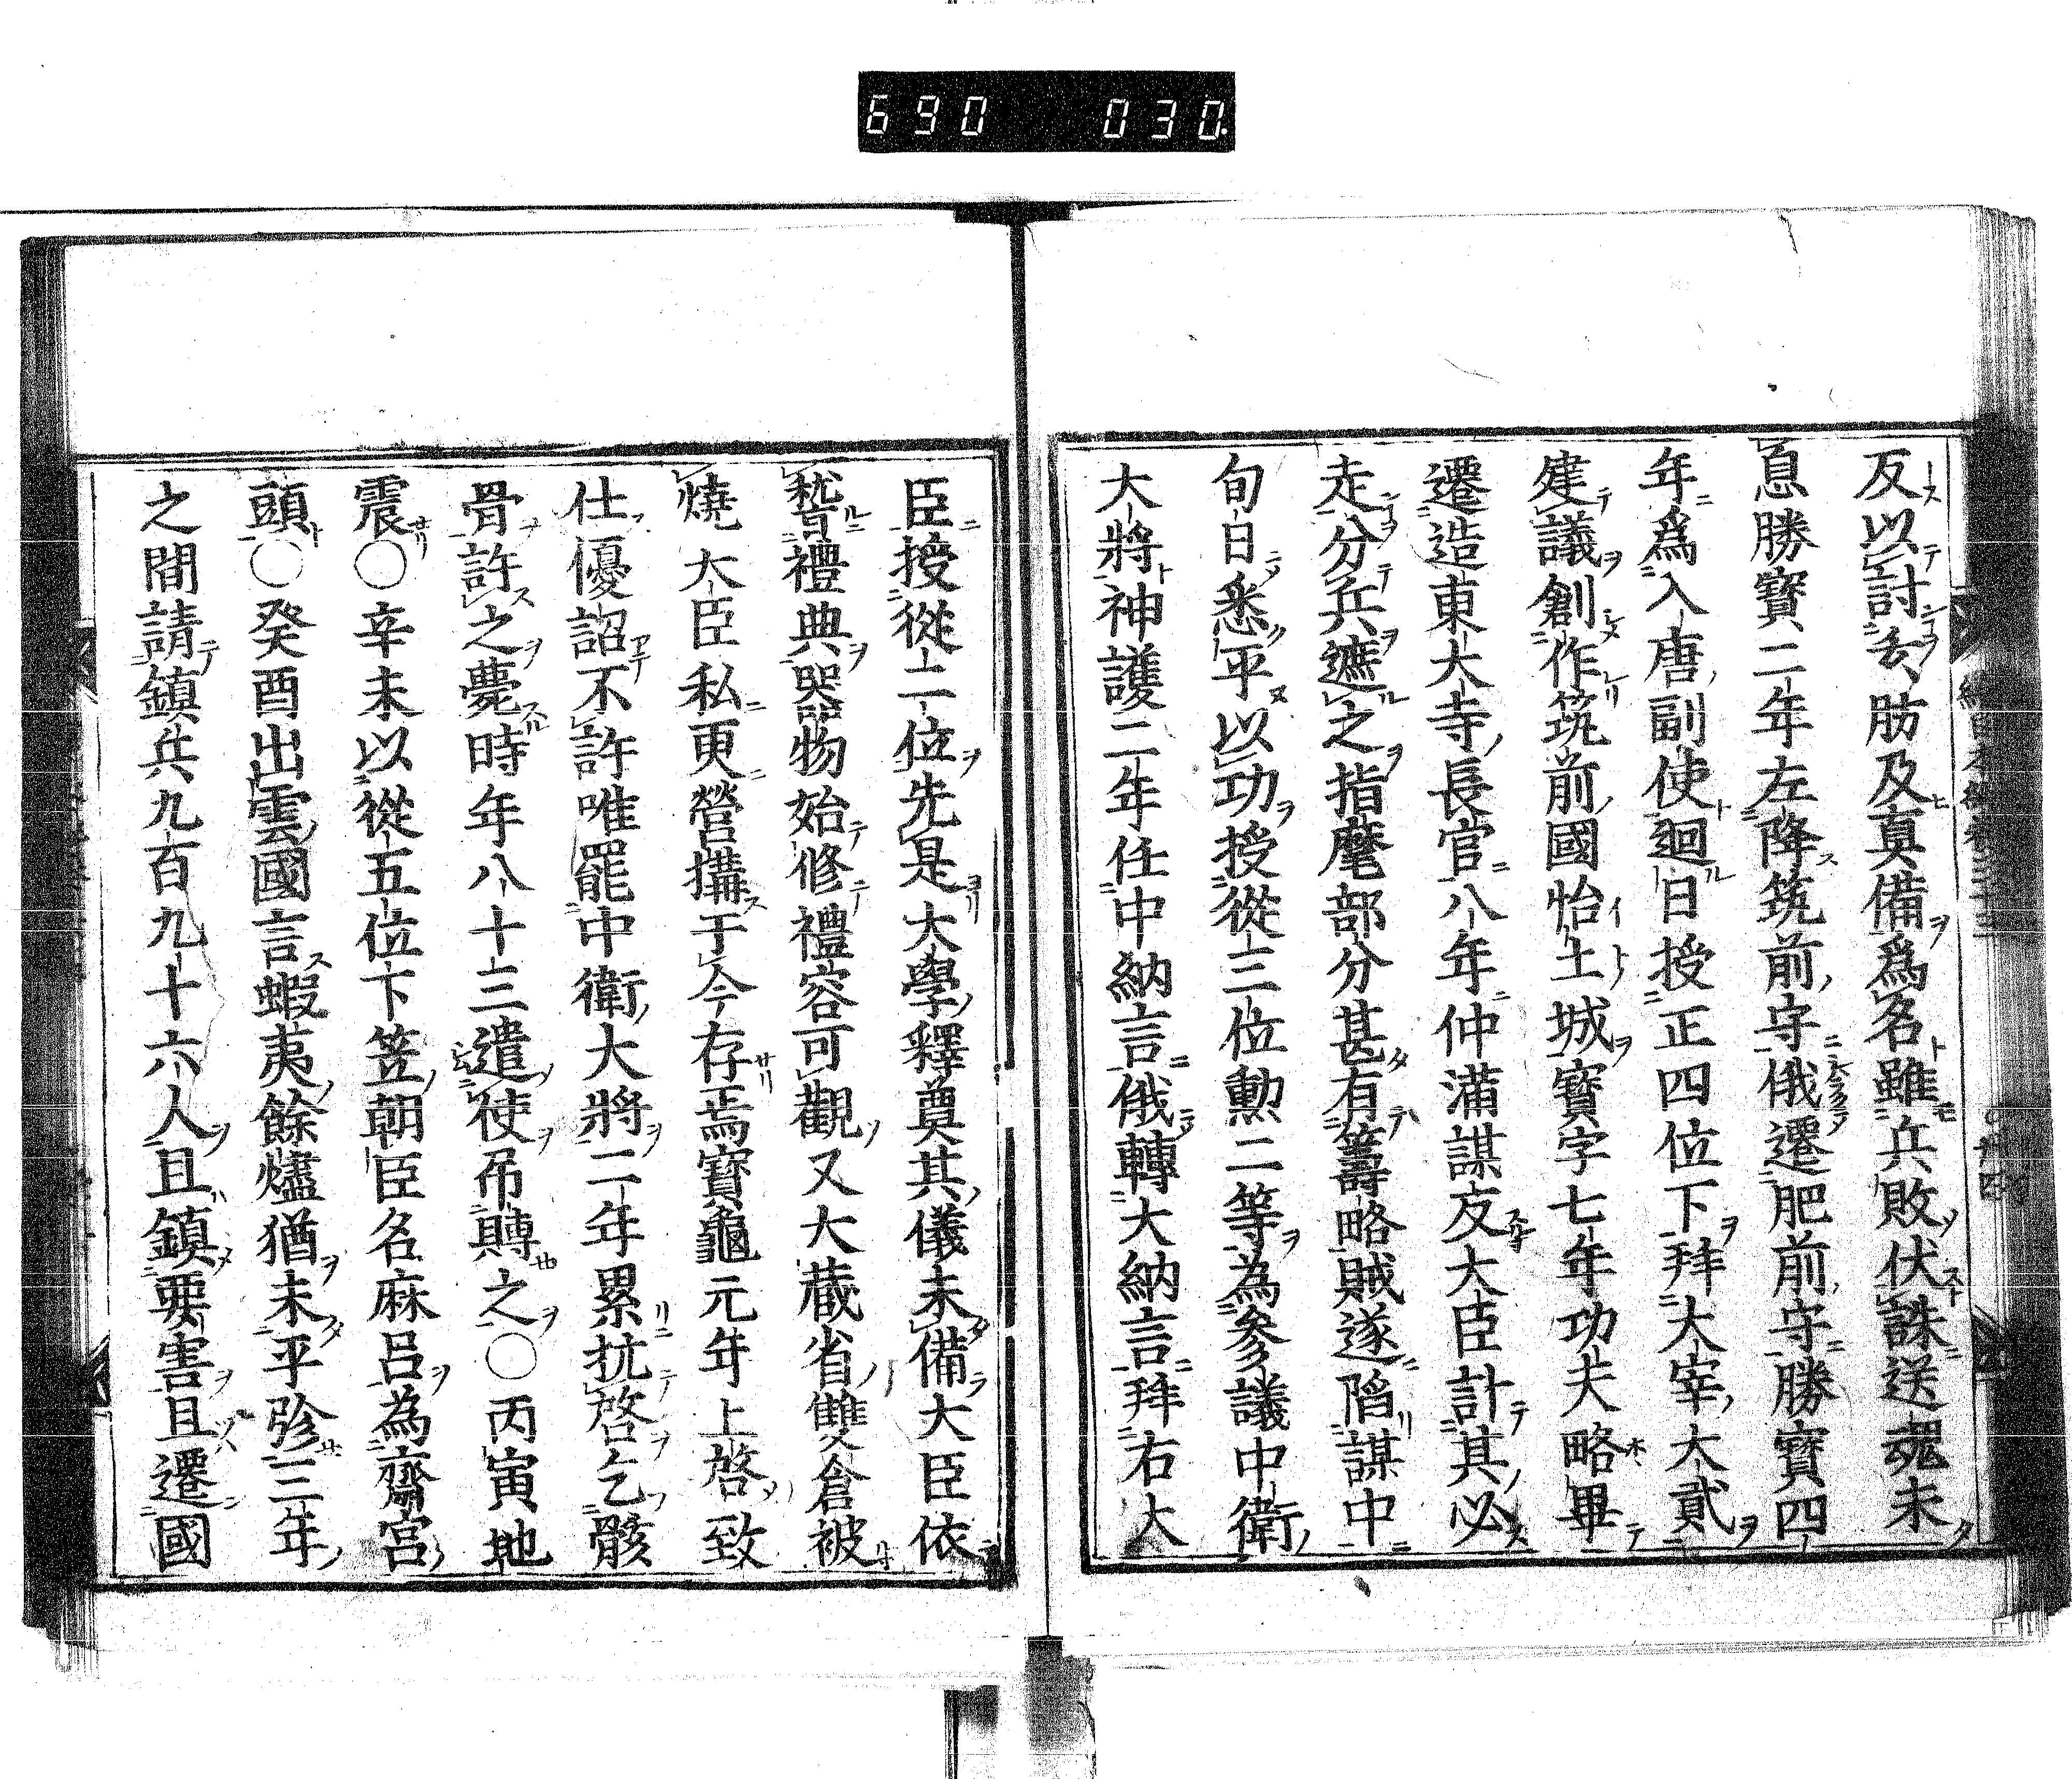 690 030
反以討玄肪及真備爲名雖兵敗伏誅送魂未
息勝寶二年左降筑前守俄遷肥前守勝寶四
年爲入唐副使廻日授正四位下拜大宰大貳
建議創作筑前國怡土城寶字七年功夫略畢
遷造東大寺長官八年仲滿謀反大臣計其必
走分兵遮之指麾部分甚有籌略賊遂陷謀中
旬日悉平以功授從三位勳二等為參議中衛
大將神護二年任中納言俄轉大納言拜右大
臣授從二位先是大學釋奠其儀未備大臣依
稽禮典器物始修禮容可觀又大藏省雙倉被
燒大臣私更營搆于今存焉寶龜元年上啓致
仕優詔不許唯罷中衛大將二年累抗啓乞骸
骨許之薨時年八十三遣使吊賻之〇丙寅地
震〇辛未以從五位下笠朝臣名麻呂為齋宮
頭〇癸酉出雲國言蝦夷餘燼猶未平殄三年
之間請鎮兵九百九十六人且鎮要害且遷國